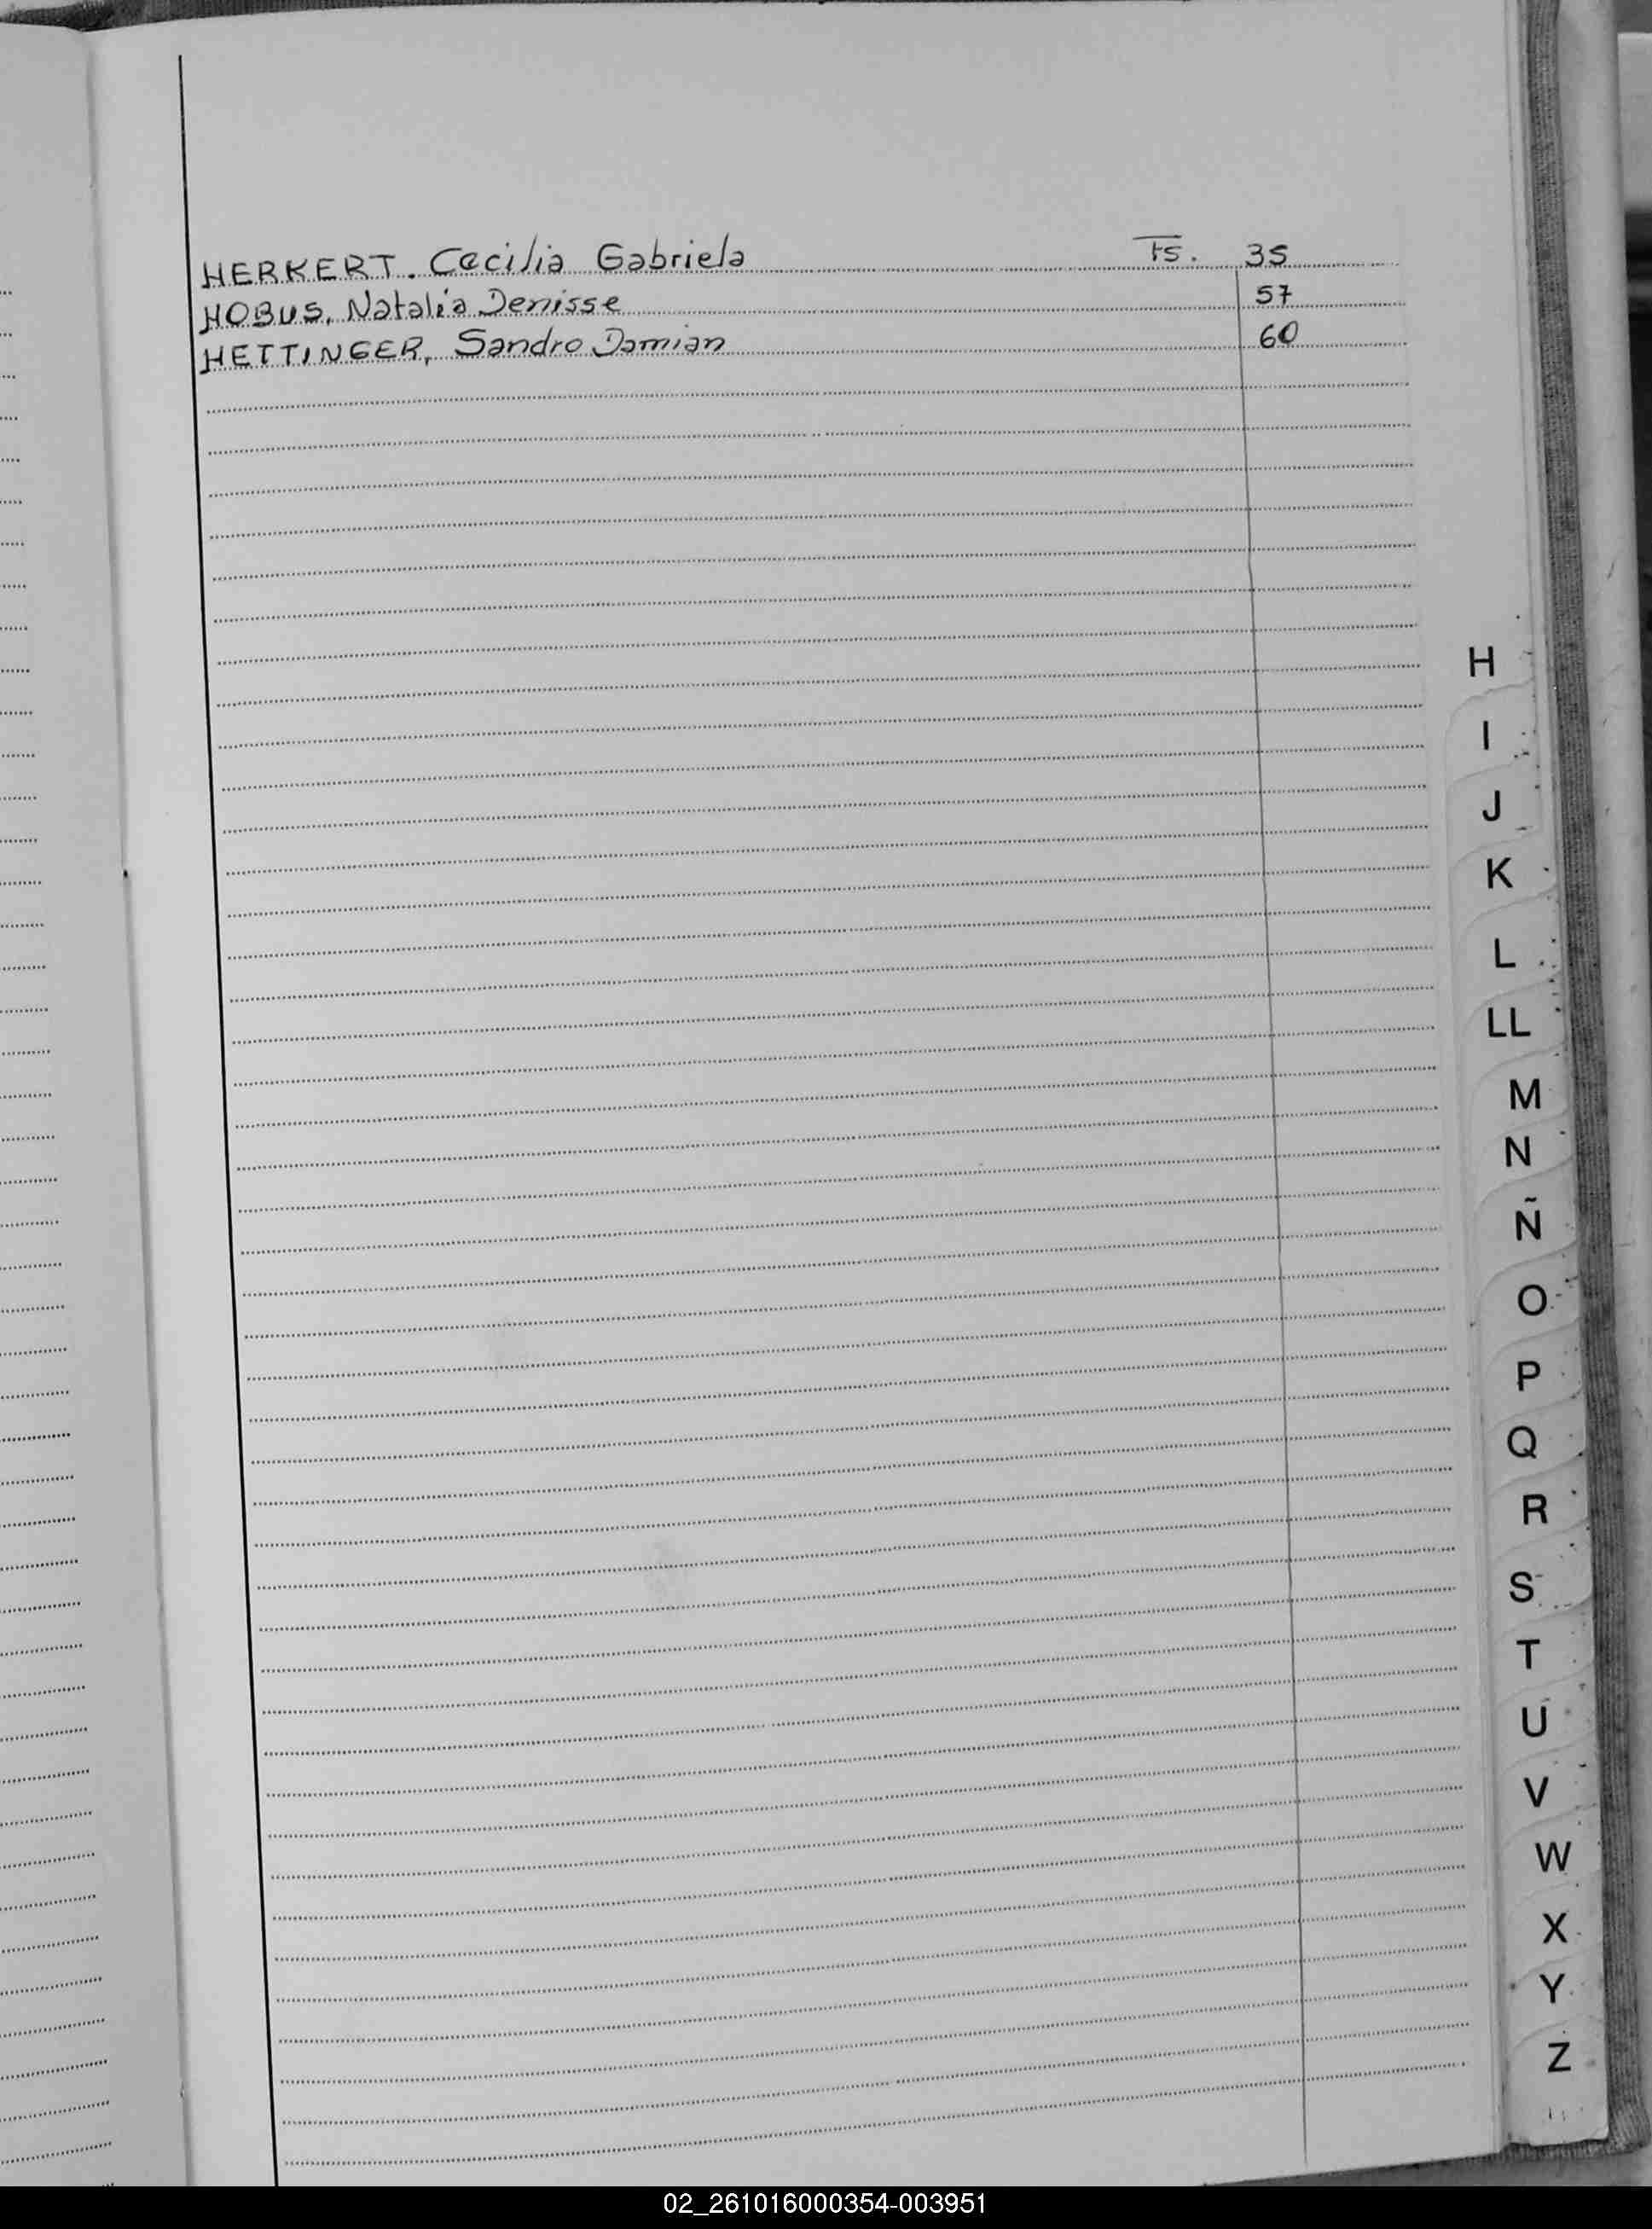 HERKERT. Cecilia Gabriela Fs. 35
HOBUS, Natalia Denisse 57
HETTINGER, Sandro Damian 60
H
I
J
K
L
LL
M
N
Ñ
O
P
Q
R
S
T
U
V
W
X
Y
Z
02_261016000354-003951